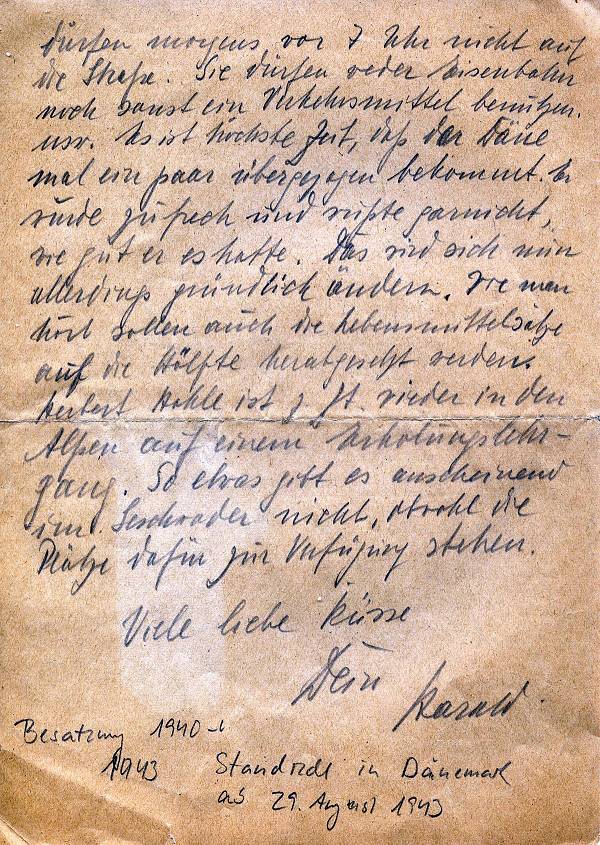 dürfen morgens vor 7 Uhr nicht auf
die Straße. Sie dürfen weder Eisenbahn
noch sonst ein Verkehrsmittel benützen.
usw. Es ist höchste Zeit, daß der Däne
mal ein paar übergezogen bekommt. Er
wurde zu frech und wußte garnicht,
wie gut er es hatte. Das wird sich nun
allerdings gründlich ändern. Wie man
hört sollen auch die Lebensmittelsätze
auf die Hälfte herabgesetzt werden.
Herbert ist z. Zt. wieder in den
Alpen auf einem Erholungslehr-
gang. So etwas gibt es anscheinend
im Geschwader nicht, obwohl die
Plätze dafür zur Verfügung stehen.
Viele liebe Küsse
Dein
Harald.
Besatzung 1940-
1943
Standrecht in Dänemark
ab 29. August 1943